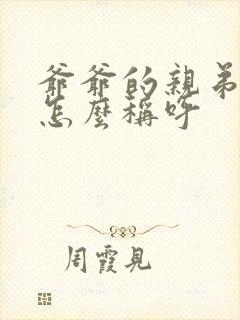 爺爺的親弟
怎麼稱呼
周霞見